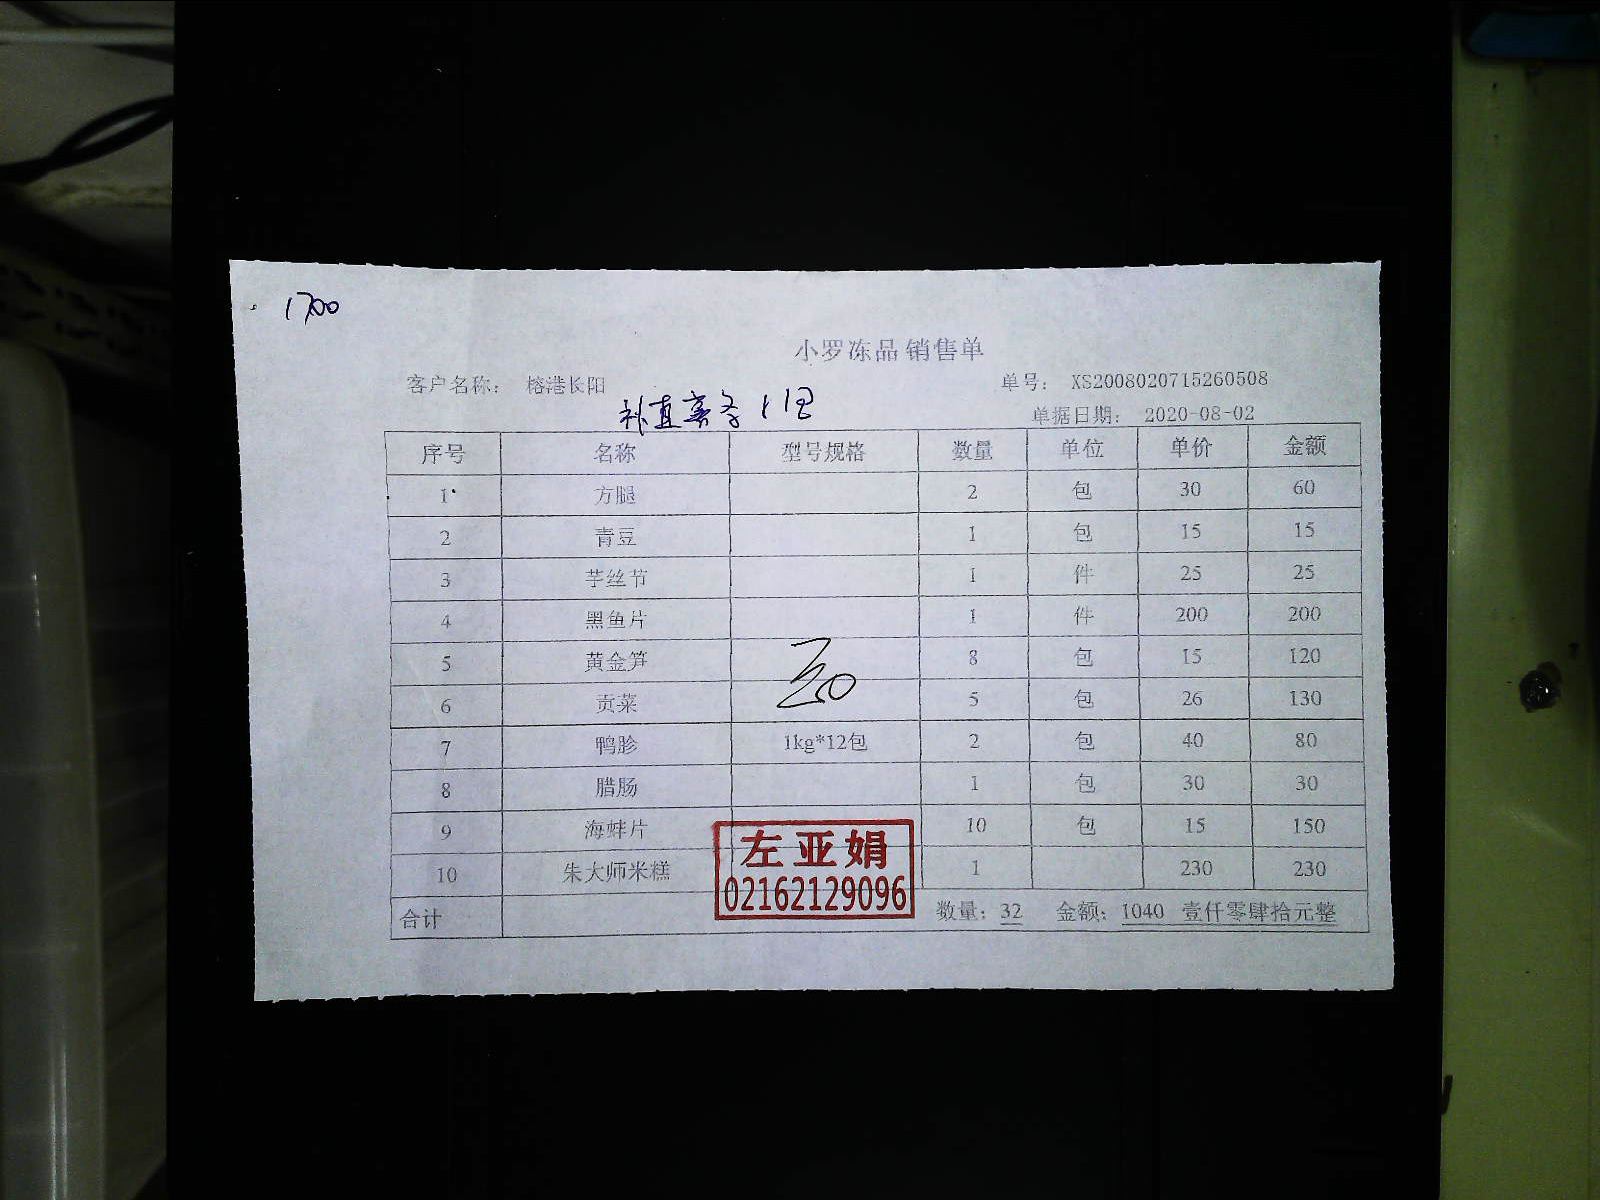 1700
小罗冻品 销售单
客户名称： 榕港长阳 单号： XS2008020715260508
单据日期： 2020-08-02
序号 名称 型号规格 数量 单位 单价 金额
1 方腿 2 包 30 60
2 青豆 1 包 15 15
3 芋丝节 1 件 25 25
4 黑鱼片 1 件 200 200
5 黄金笋 8 包 15 120
6 贡菜 5 包 26 130
7 鸭胗 1kg*12包 2 包 40 80
8 腊肠 1 包 30 30
9 海蚌片 10 包 15 150
10 朱大师米糕 1 230 230
左亚娟
02162129096
合计 数量：32 金额：1040 壹仟零肆拾元整